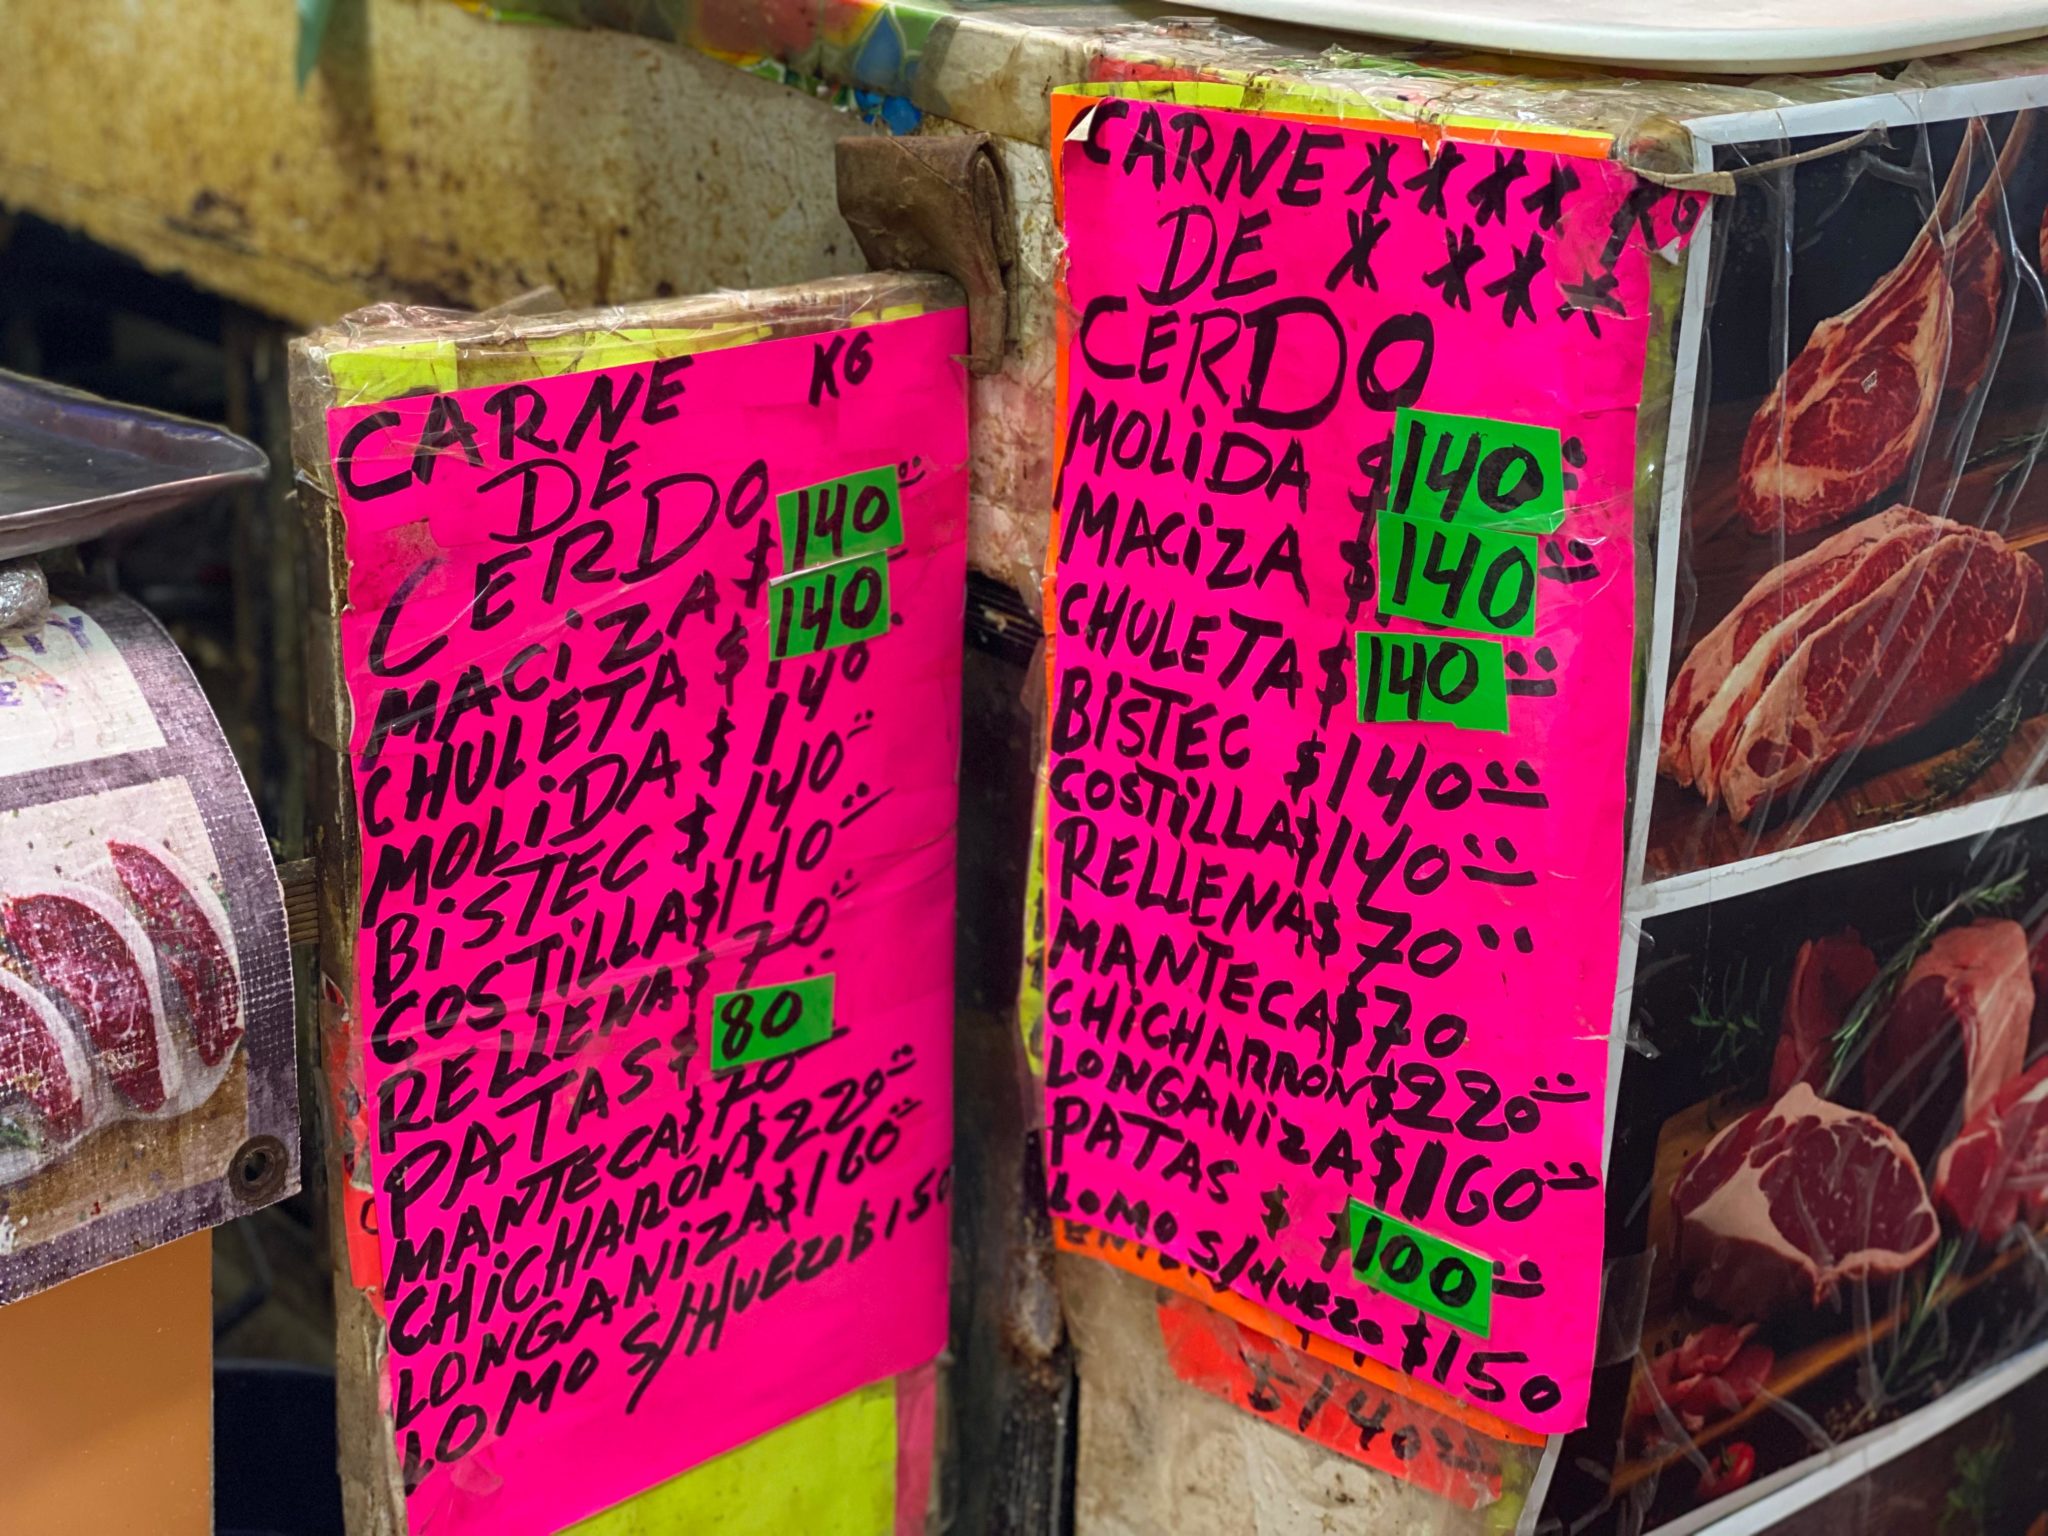 CARNE KG
DE
CERDO
MACIZA $ 140
CHULETA $ 140
MOLIDA $ 140
BISTEC $ 140
COSTILLA $ 140
RELLENA $ 70
PATAS $ 80
MANTECA $ 70
CHICHARON $ 220
LONGANIZA $ 160
LOMO S/HUEZO $ 150
CARNE **** KG
DE * ***
CERDO
MOLIDA $ 140
MACIZA $ 140
CHULETA $ 140
BISTEC $ 140
COSTILLA $ 140
RELLENA $ 70
MANTECA $ 70
CHICHARRON $ 220
LONGANIZA $ 160
PATAS $ $100
LOMO S/HUEZO $ 150
$140